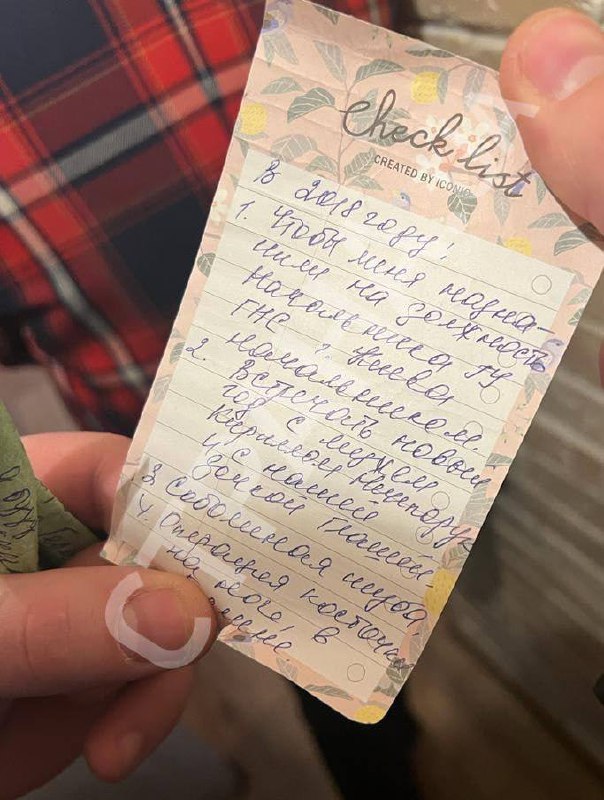 check list
CREATED BY ICONIC
В 2018 году!
1. Чтобы меня назна-
чили на должность
начальника ГУ
ГНС г. Киева
начальником.
2. Встречать новый
год с мужем
Кириллом
и с нашей
дочкой Глашей
3. Соболиная шуба
4. Операция косточки
на ноге в